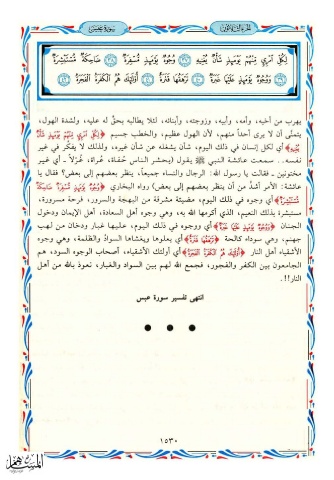 الجزء الثلاثون
سورة عبس
لِكُلِّ امْرِئٍ مِنْهُمْ يَوْمَئِذٍ شَأْنٌ يُغْنِيهِ ﴿٣٧﴾ وُجُوهٌ يَوْمَئِذٍ مُسْفِرَةٌ ﴿٣٨﴾ ضَاحِكَةٌ مُسْتَبْشِرَةٌ
﴿٣٩﴾ وَوُجُوهٌ يَوْمَئِذٍ عَلَيْهَا غَبَرَةٌ ﴿٤٠﴾ تَرْهَقُهَا قَتَرَةٌ ﴿٤١﴾ أُولَئِكَ هُمُ الْكَفَرَةُ الْفَجَرَةُ ﴿٤٢﴾
يهرب من أخيه، وأمه، وأبيه، وزوجته، وأبنائه، لئلا يطالبه بحقّ له عليه، ولشدة الهول،
يتمنّى أن لا يرى أحداً منهم، لأن الهول عظيم، والخطب جسيم ﴿لِكُلِّ امْرِئٍ مِنْهُمْ يَوْمَئِذٍ شَأْنٌ
يُغْنِيهِ﴾ أي لكل إنسان في ذلك اليوم، شأن يشغله عن شأن غيره، ولذلك لا يفكّر في غير
نفسه.. سمعت عائشة النبي ﷺ يقول (يحشر الناس حُفاة، عُراة، غُرْلاً - أي غير
مختونين - فقالت يا رسول الله: الرجال والنساء جميعاً، ينظر بعضهم إلى بعض؟ فقال يا
عائشة: الأمر أشدّ من أن ينظر بعضهم إلى بعض) رواه البخاري ﴿وُجُوهٌ يَوْمَئِذٍ مُسْفِرَةٌ ضَاحِكَةٌ
مُسْتَبْشِرَةٌ﴾ أي وجوه في ذلك اليوم، مضيئة مشرقة من البهجة والسرور، فرحة مسرورة،
مستبشرة بذلك النعيم، الذي أكرمها الله به، وهي وجوه أهل السعادة، أهل الإيمان ودخول
الجنان ﴿وَوُجُوهٌ يَوْمَئِذٍ عَلَيْهَا غَبَرَةٌ﴾ أي ووجوه في ذلك اليوم، عليها غبار ودخان من لهب
جهنم، وهي سوداء كالحة ﴿تَرْهَقُهَا قَتَرَةٌ﴾ أي يعلوها ويغشاها السوادُ والظلمة، وهي وجوه
الأشقياء أهل النار ﴿أُولَئِكَ هُمُ الْكَفَرَةُ الْفَجَرَةُ﴾ أي أولئك الأشقياء، أصحاب الوجوه السود، هم
الجامعون بين الكفر والفجور، فجمع الله لهم بين السواد والغبار، نعوذ بالله من أهل
النار!!.
انتهى تفسير سورة عبس
١٥٣٠